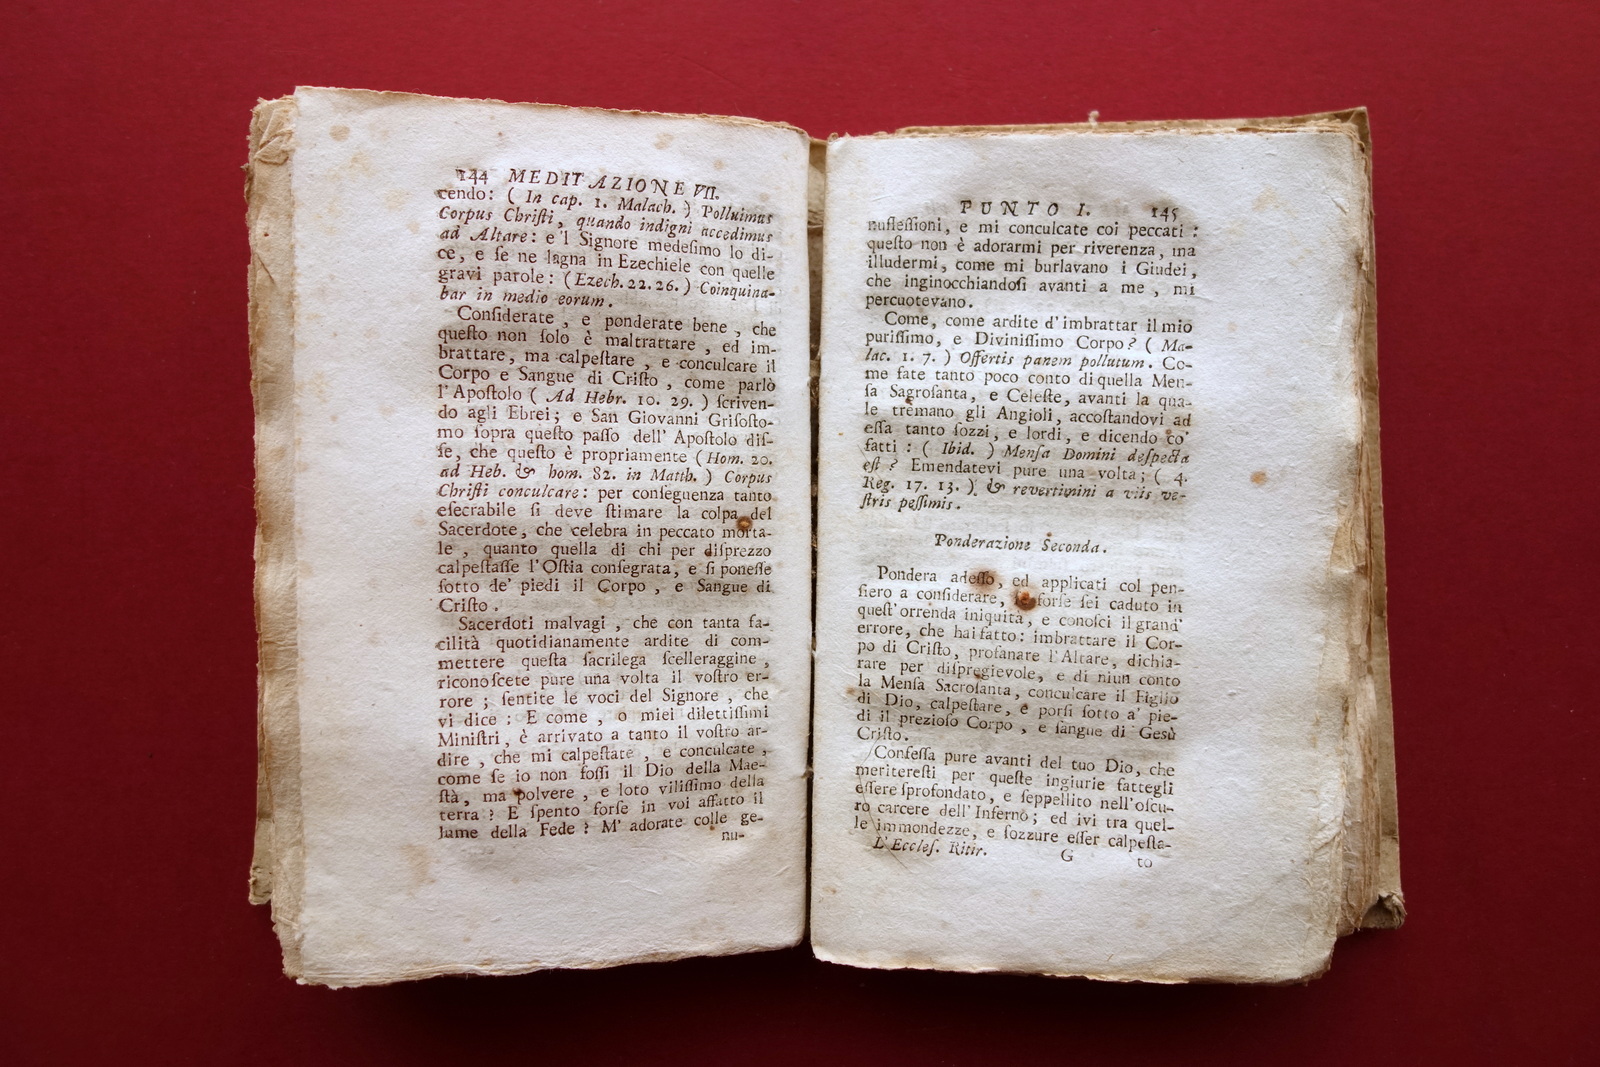 144 MEDITAZIONE VII.
cendo: ( In cap. 1. Malach. ) Polluimus
Corpus Chriſti, quando indigni accedimus
ad Altare: e 'l Signore medeſimo lo di-
ce, e ſe ne lagna in Ezechiele con quelle
gravi parole: (Ezech. 22. 26. ) Coinquina-
bar in medio eorum.
Conſiderate, e ponderate bene, che
queſto non ſolo è maltrattare, ed im-
brattare, ma calpeſtare, e conculcare il
Corpo e Sangue di Criſto, come parlò
l'Apoſtolo ( Ad Hebr. 10. 29. ) ſcriven-
do agli Ebrei; e San Giovanni Griſoſto-
mo ſopra queſto paſſo dell' Apoſtolo diſ-
ſe, che queſto è propriamente (Hom. 20.
ad Heb. & hom. 82. in Matth. ) Corpus
Chriſti conculcare: per conſeguenza tanto
eſecrabile ſi deve ſtimare la colpa del
Sacerdote, che celebra in peccato morta-
le, quanto quella di chi per diſprezzo
calpeſtaſſe l'Oſtia conſegrata, e ſi poneſſe
ſotto de' piedi il Corpo, e Sangue di
Criſto.
Sacerdoti malvagi, che con tanta fa-
cilità quotidianamente ardite di com-
mettere queſta ſacrilega ſcelleraggine,
riconoſcete pure una volta il voſtro er-
rore; ſentite le voci del Signore, che
vi dice: E come, o miei dilettiſſimi
Miniſtri, è arrivato a tanto il voſtro ar-
dire, che mi calpeſtate, e conculcate,
come ſe io non foſſi il Dio della Mae-
ſtà, ma polvere, e loto viliſſimo della
terra? E ſpento forſe in voi affatto il
lume della Fede? M' adorate colle ge-
nu-
PUNTO I. 145
nufleſſioni, e mi conculcate coi peccati:
queſto non è adorarmi per riverenza, ma
illudermi, come mi burlavano i Giudei,
che inginocchiandoſi avanti a me, mi
percuotevano.
Come, come ardite d'imbrattar il mio
puriſſimo, e Diviniſſimo Corpo? ( Ma-
lac. 1. 7. ) Offertis panem pollutum. Co-
me fate tanto poco conto di quella Men-
ſa Sagroſanta, e Celeſte, avanti la qua-
le tremano gli Angioli, accoſtandovi ad
eſſa tanto ſozzi, e lordi, e dicendo co'
fatti: ( Ibid. ) Menſa Domini deſpecta
eſt? Emendatevi pure una volta; ( 4.
Reg. 17. 13. ) & revertimini a viis ve-
ſtris peſſimis.
Ponderazione Seconda.
Pondera adeſſo, ed applicati col pen-
ſiero a conſiderare, ſe forſe ſei caduto in
queſt'orrenda iniquità, e conoſci il grand'
errore, che hai fatto: imbrattare il Cor-
po di Criſto, profanare l'Altare, dichia-
rare per diſpregievole, e di niun conto
la Menſa Sacroſanta, conculcare il Figlio
di Dio, calpeſtare, e porſi ſotto a' pie-
di il prezioſo Corpo, e ſangue di Gesù
Criſto.
Confeſſa pure avanti del tuo Dio, che
meritereſti per queſte ingiurie fattegli
eſſere ſprofondato, e ſeppellito nell'oſcu-
ro carcere dell'Inferno; ed ivi tra quel-
le immondezze, e ſozzure eſſer calpeſta-
L'Eccleſ. Ritir. G to